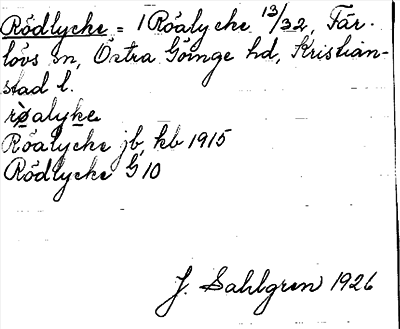 Rödlycke = 1 Röalycke 13/32, Fär-
lövs sn, Östra Göinge hd, Kristian-
stad l.
rø̀alyke
Röalycke jb, kb 1915
Rödlycke G 10
J. Sahlgren 1926